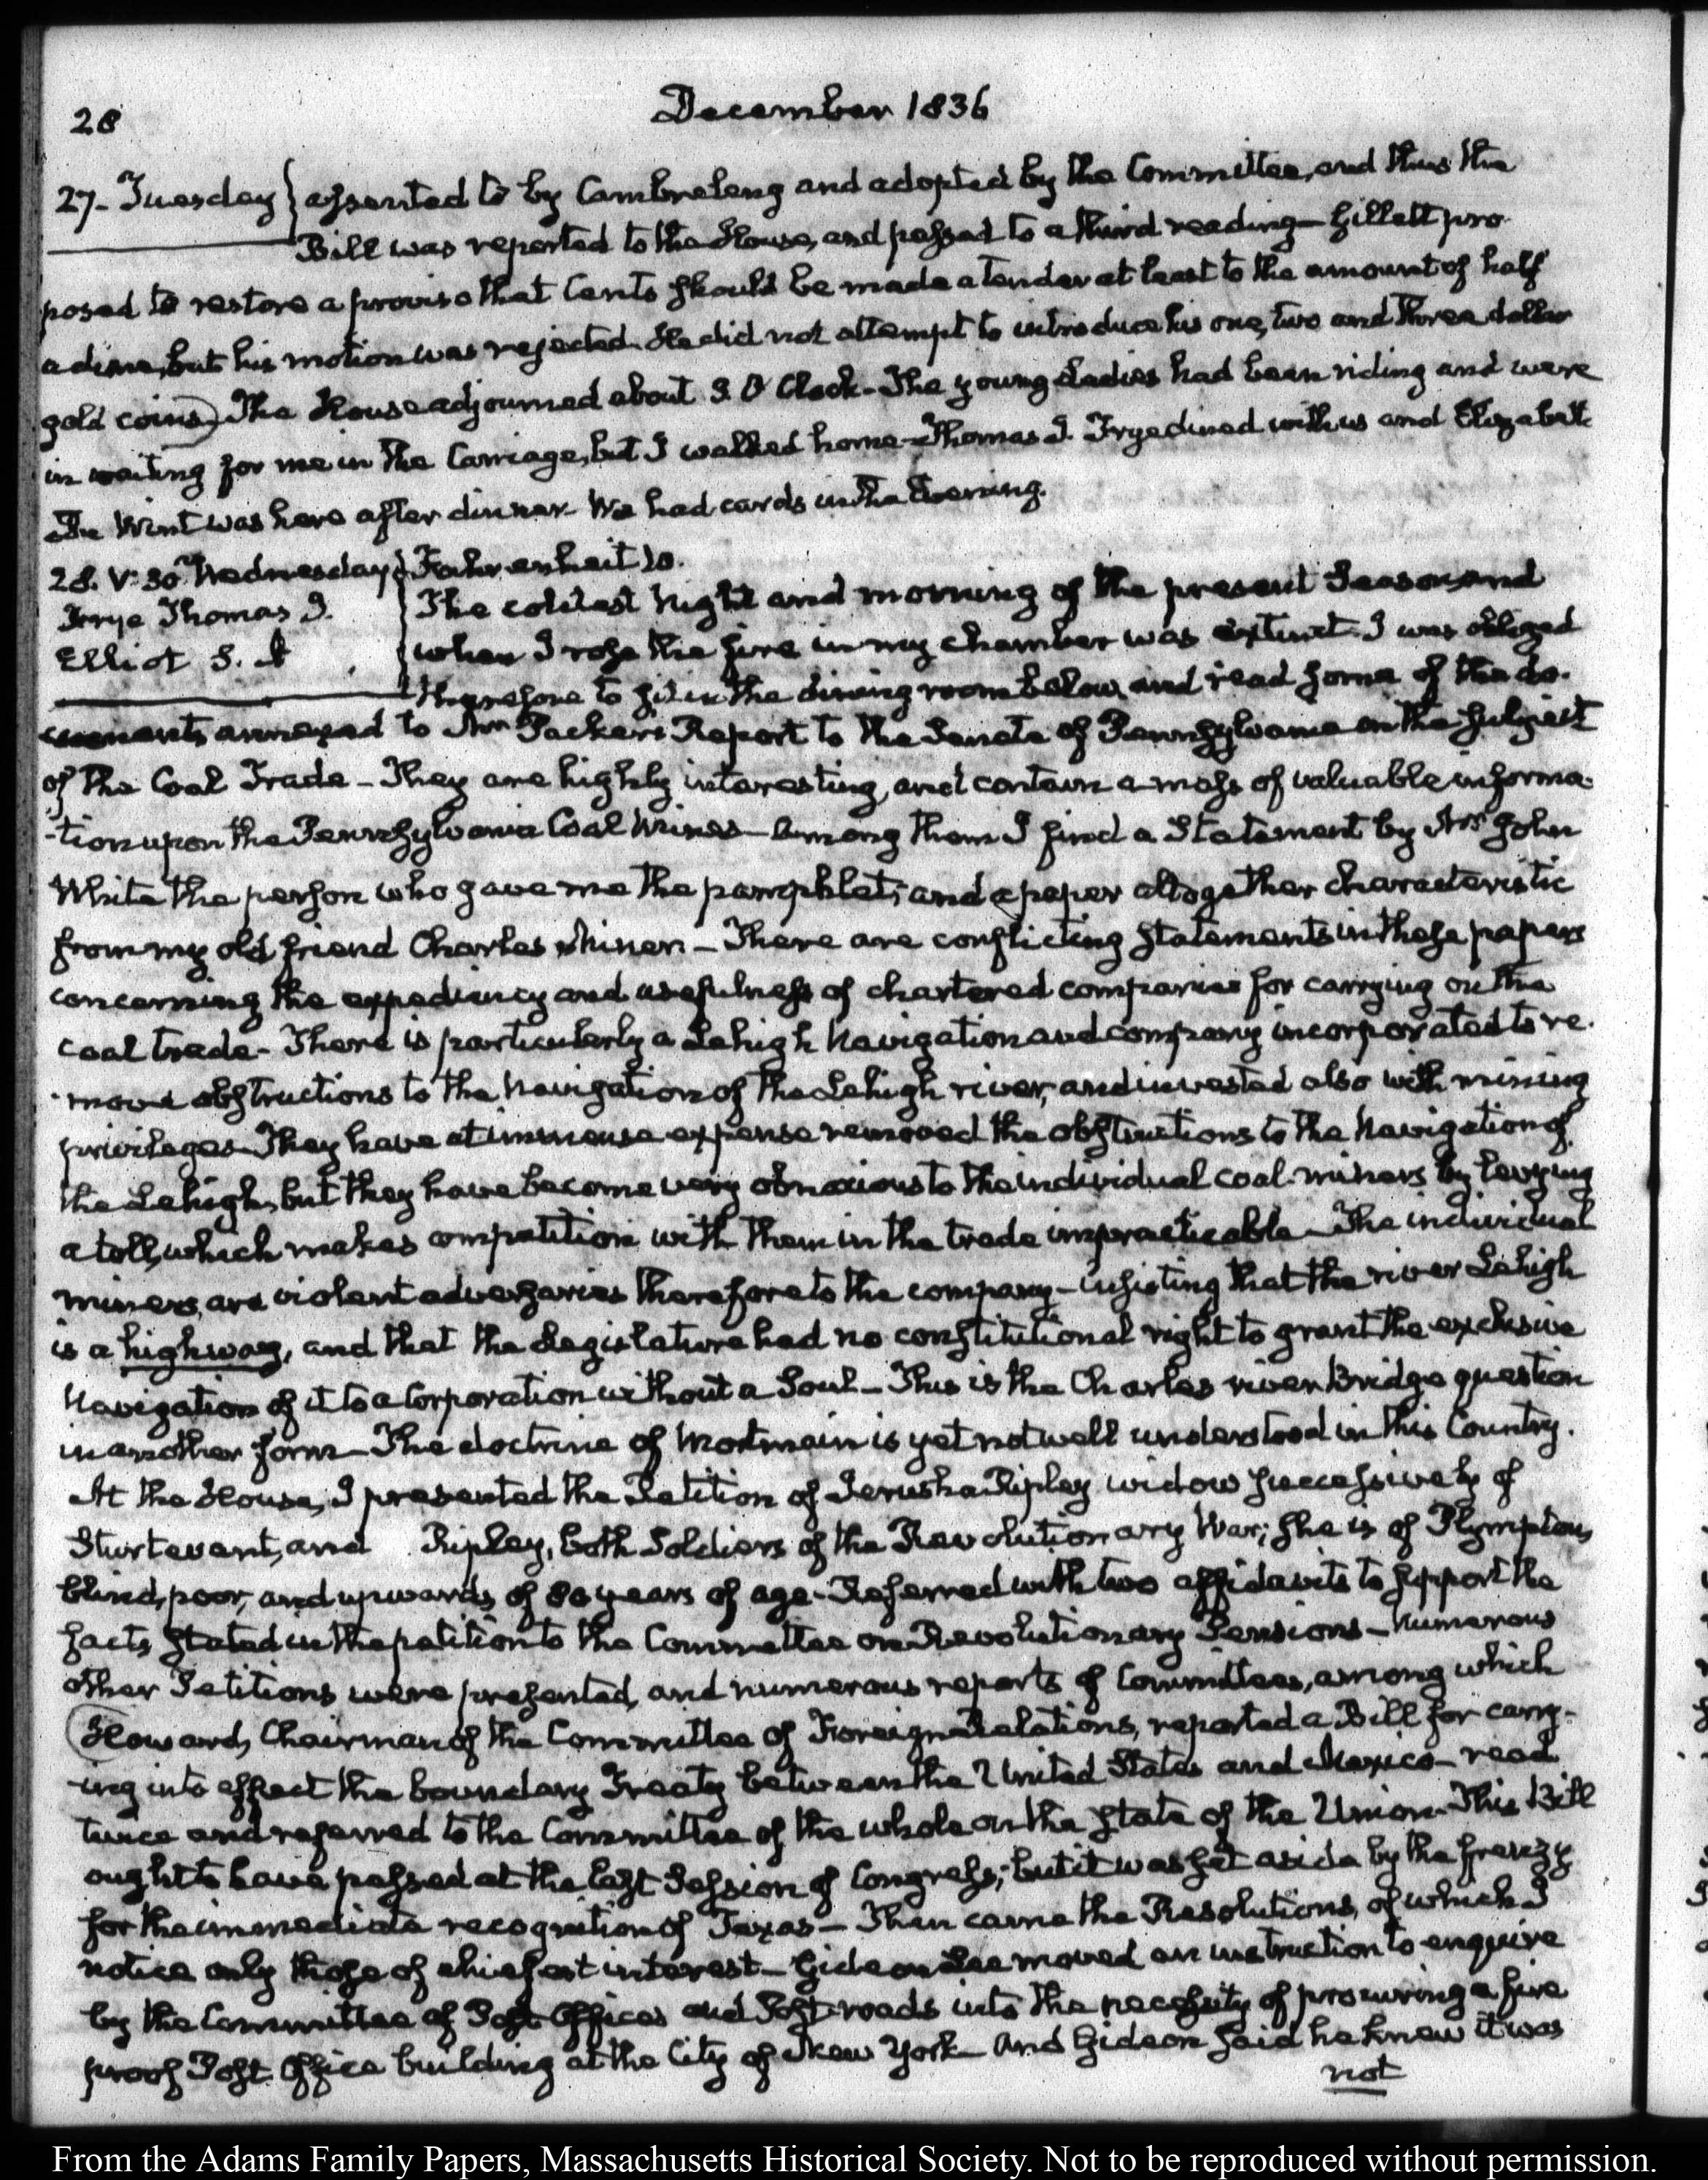 28
December 1836
27. Tuesday } assented to by Cambreleng and adopted by the Committee, and thus the
Bill was reported to the House, and passed to a third reading — Gillett pro-
posed to restore a proviso that Cents should be made a tender at least to the amount of half
a dime, but his motion was rejected. He did not attempt to introduce his one, two and three dollar
gold coins) The House adjourned about 3. O'Clock — The young Ladies had been riding and were
in waiting for me in the Carriage, but I walked home — Thomas J. Frye dined with us and Elizabeth
De Wint was here after dinner. We had cards in the Evening.
28. V: 30. Wednesday } Fahrenheit 10.
Frye Thomas J.
Elliot S. A
The coldest night and morning of the present Season, and
when I rose the fire in my chamber was extinct. I was obliged
therefore to sit in the dining room below, and read some of the do-
cuments annexed to Mr Packer's Report to the Senate of Pennsylvania on the subject
of the Coal Trade — They are highly interesting, and contain a mass of valuable informa-
-tion upon the Pennsylvania Coal Mines — Among them I find a Statement by Mr John
White the person who gave me the pamphlet; and a paper altogether characteristic
from my old friend Charles Miner. — There are conflicting statements in these papers
concerning the expediency and usefulness of chartered companies for carrying on the
coal trade — There is particularly a Lehigh Navigation and company incorporated to re-
-move obstructions to the Navigation of the Lehigh river, and invested also with mining
privileges — They have at immense expense removed the obstructions to the Navigation of
the Lehigh, but they have become very obnoxious to the individual coal-miners by levying
a toll, which makes competition with them in the trade impracticable — The individual
miners, are violent adversaries therefore to the company — insisting that the river Lehigh
is a highway, and that the Legislature had no constitutional right to grant the exclusive
Navigation of it to a Corporation without a Soul — This is the Charles river Bridge question
in another form — The doctrine of Mortmain is yet not well understood in this Country.
At the House, I presented the Petition of Jerusha Ripley widow successively of
Sturtevant, and Ripley, both Soldiers of the Revolutionary War; she is of Plympton,
blind, poor, and upwards of 80 years of age — Referred with two affidavits to support the
facts stated in the petition to the Committee on Revolutionary Pensions — Numerous
other Petitions were presented, and numerous reports of Committees, among which
(Howard, Chairman of the Committee of Foreign Relations, reported a Bill for carry-
-ing into effect the boundary Treaty between the United States and Mexico — read
twice and referred to the Committee of the whole on the state of the Union. This Bill
ought to have passed at the last Session of Congress; but it was set aside by the frenzy
for the immediate recognition of Texas — Then came the Resolutions, of which I
notice only those of chiefest interest — Gideon Lee moved an instruction to enquire
by the Committee of Post Offices and Post-roads into the necessity of procuring a fire
proof Post Office building at the City of New York — And Gideon said he knew it was
not
From the Adams Family Papers, Massachusetts Historical Society. Not to be reproduced without permission.